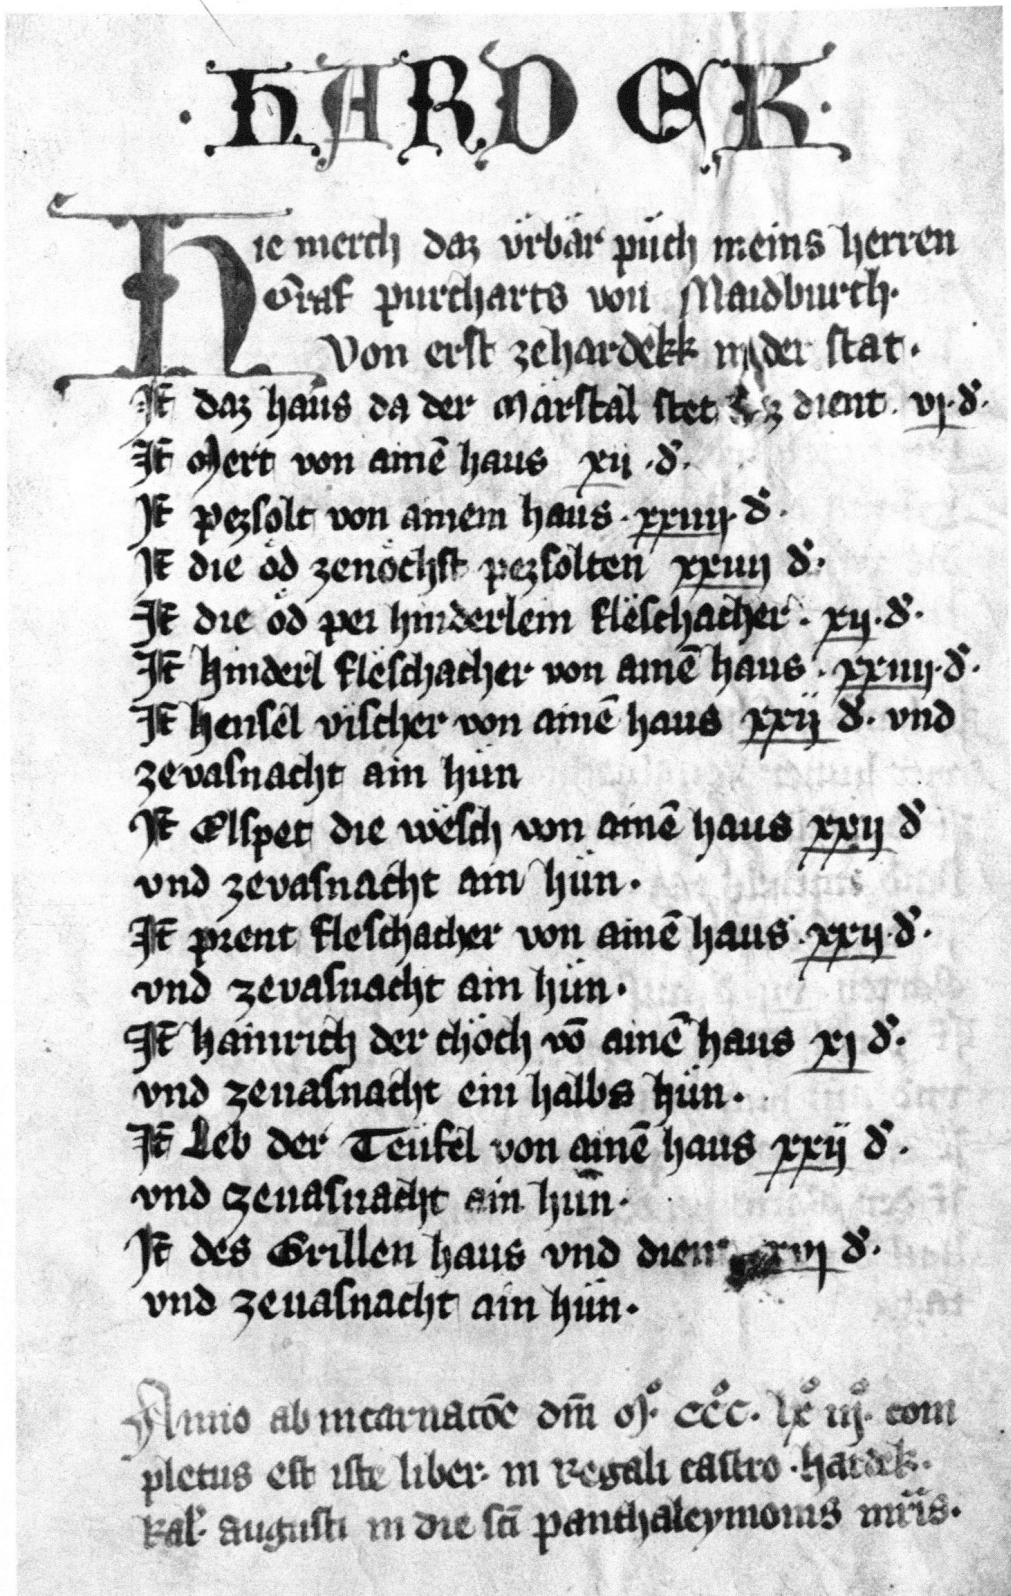 · HARD EK ·
Hie merch daz vrbär püch meins herren
Graf purcharts von Maidburch.
Von erst ze hardekk in der stat.
It̄ daz haus da der Marstal stet dient . vj . d̄.
It̄ Mert von ainē haus xij . d̄.
It̄ pezsolt von ainem haus . xxiiij . d̄.
It̄ die öd zenöchst pezsolten xxiiij d̄.
It̄ die öd pei hinderlein fleschacher . xij . d̄.
It̄ hinderl fleschacher von ainē haus . xxiiij . d̄.
It̄ hensel vischer von ainē haus xxij d̄. vnd
zevasnacht ain hün
It̄ Elspet die wesch von ainē haus xxij d̄
vnd zevasnacht ain hün.
It̄ prent fleschacher von ainē haus . xxij . d̄.
vnd zevasnacht ain hün.
It̄ hainrich der chöch vō ainē haus xj d̄.
vnd zeuasnacht ein halbs hün.
It̄ Leb der Teufel von ainē haus xxij d̄.
vnd zeuasnacht ain hün.
It̄ des Grillen haus vnd d̄.
vnd zeuasnacht ain hün.
Anno ab incarnatōe dm̄ Mº. cccº. lxº iijº. com
pletus est iste liber. in regali castro . hardek.
kal. augusti in die sc̄i panthaleymonis mr̄is.